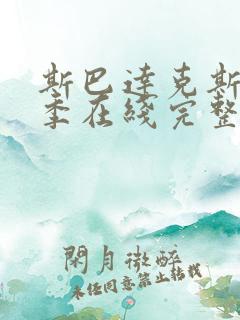 斯巴达克斯
季在线完整
閑月微醉
未经同意禁止转载